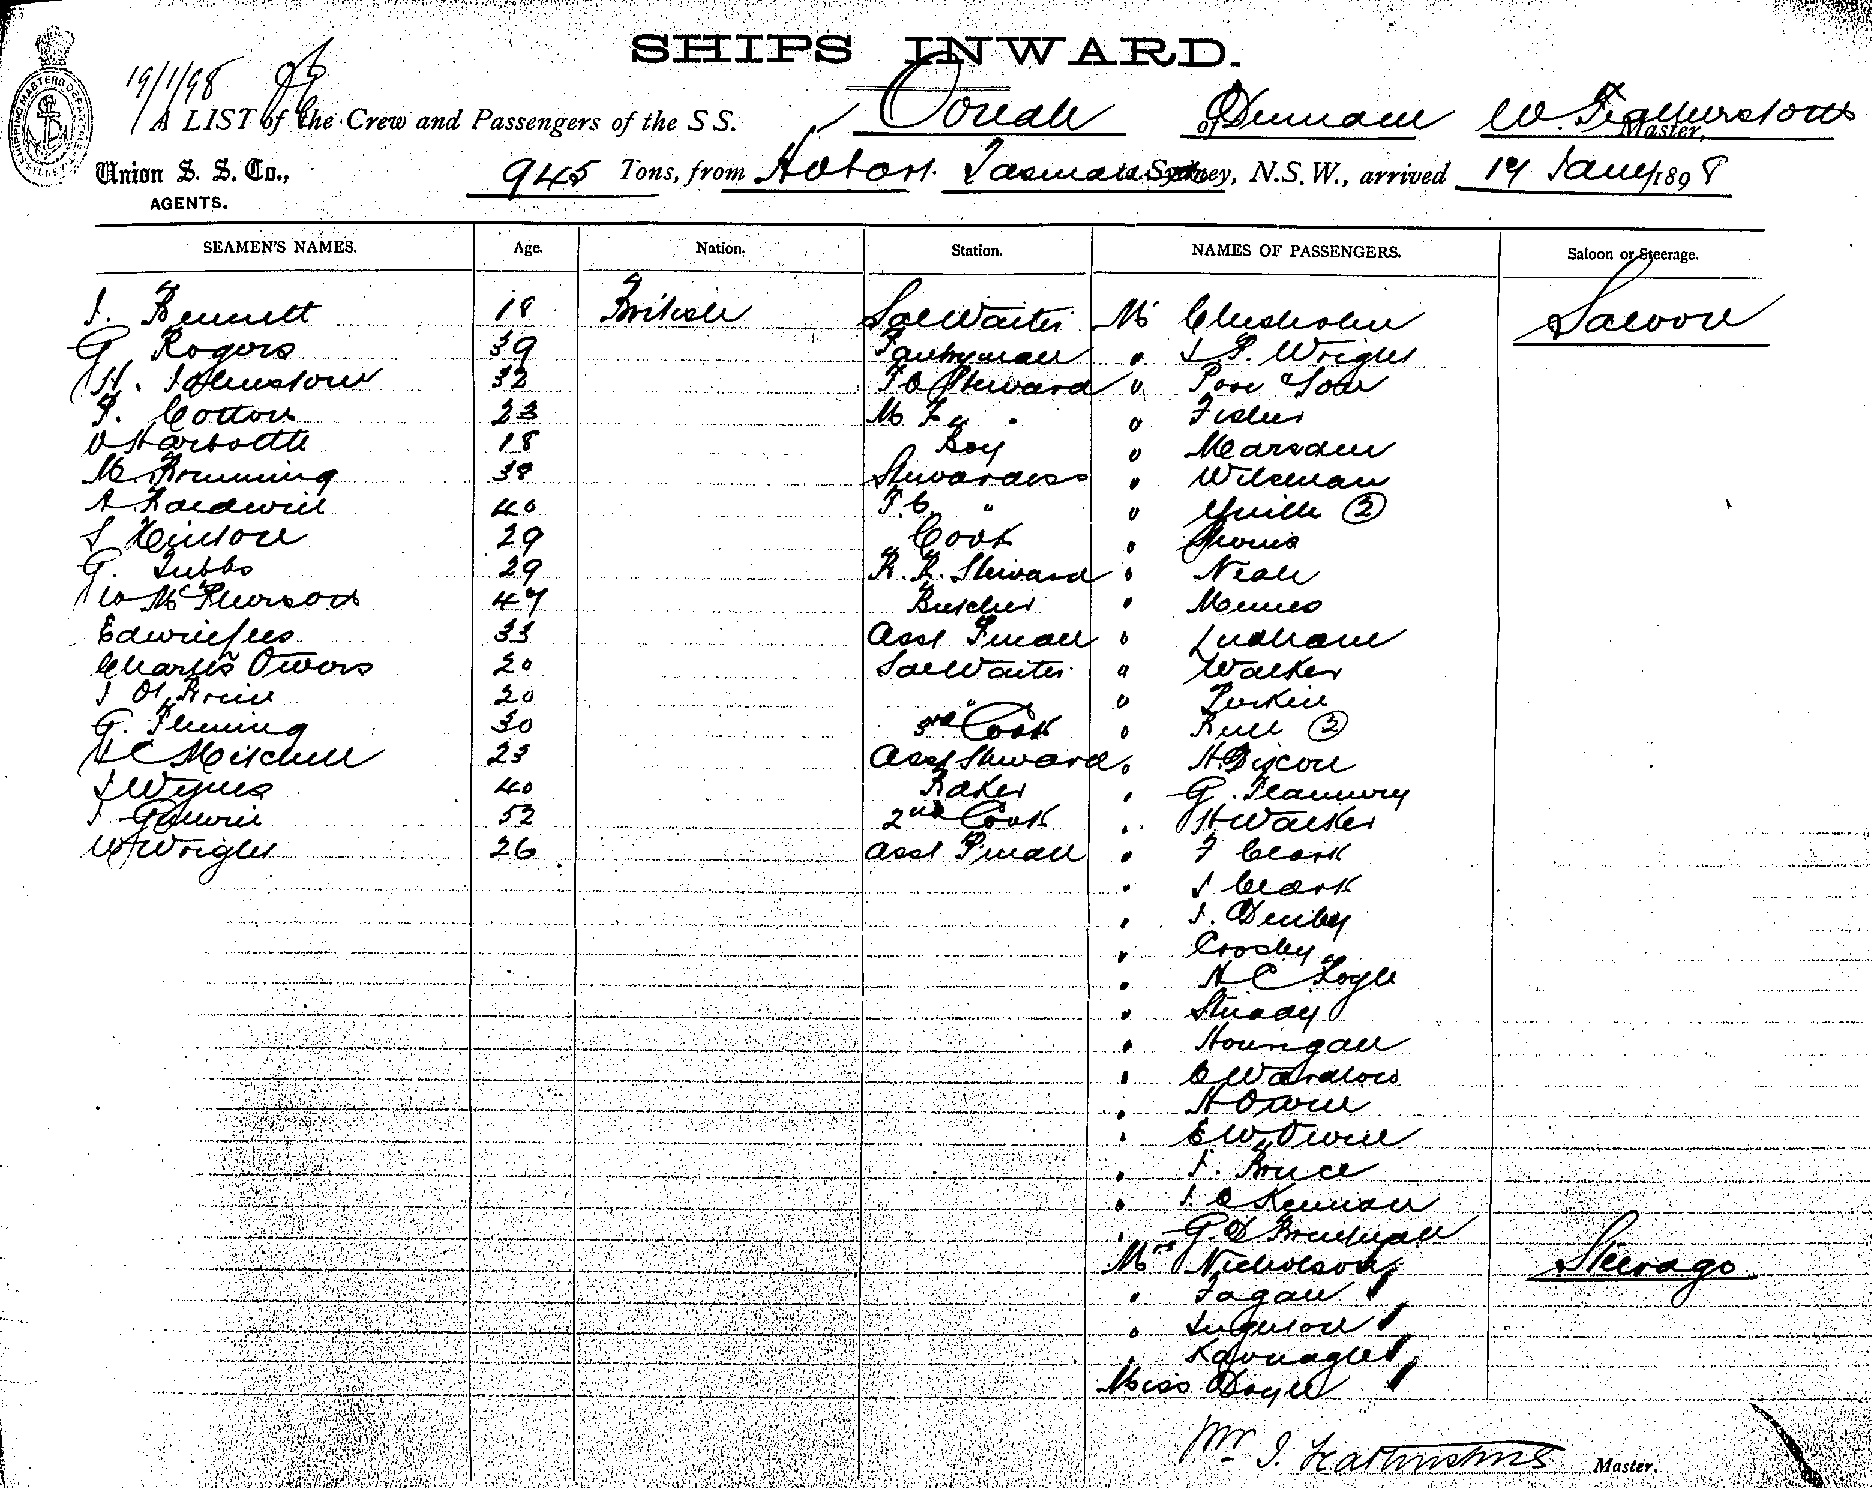 SHIPS INWARD.
19/1/98
A LIST of the Crew and Passengers of the S S. Oonah of W. Featherstone Master,
Union S. S. Co., AGENTS. 945 Tons, from Hobart Tasmania Sydney, N.S.W., arrived 17 Jany 1898
SEAMEN'S NAMES. Age. Nation. Station. NAMES OF PASSENGERS. Saloon or Steerage.
J. Bennett 18 British Sal Waiter Mr Chisholm Saloon
G Rogers 39 Pantryman " J P. Wright
H. Johnstone 32 F C Steward " Poor
P. Cotton 23 " Fisher
Harbottle 18 Boy " Marsden
M Brumming 38 Stewardess "
A Baldwin 40 F.C. " " (2)
S Hinton 29 Cook "
G. Tubbs 29 Steward " Neale
W McPherson 47 Butcher "
Edwin 33 Asst Pman " Ludham
Charles Owens 20 Sal Waiter " Walker
J O'Brien 20 "
G. Fleming 30 3rd Cook " (2)
H C Mitchell 23 Asst Steward " H Dixon
J Wynes 40 Baker " G. Flannery
J 52 2nd Cook " H Walker
W Wright 26 Asst Pman " F Clark
" J Clark
" J. Denby
" Crosby
" H C
"
" Hourigan
" C Wardlow
" H Owen
" E W Owen
" J. Bruce
"
"
Mrs Nicholson Steerage
" Fagan
" Ferguson
" Kavanagh
Miss Doyle
Wm J. Featherstone Master.